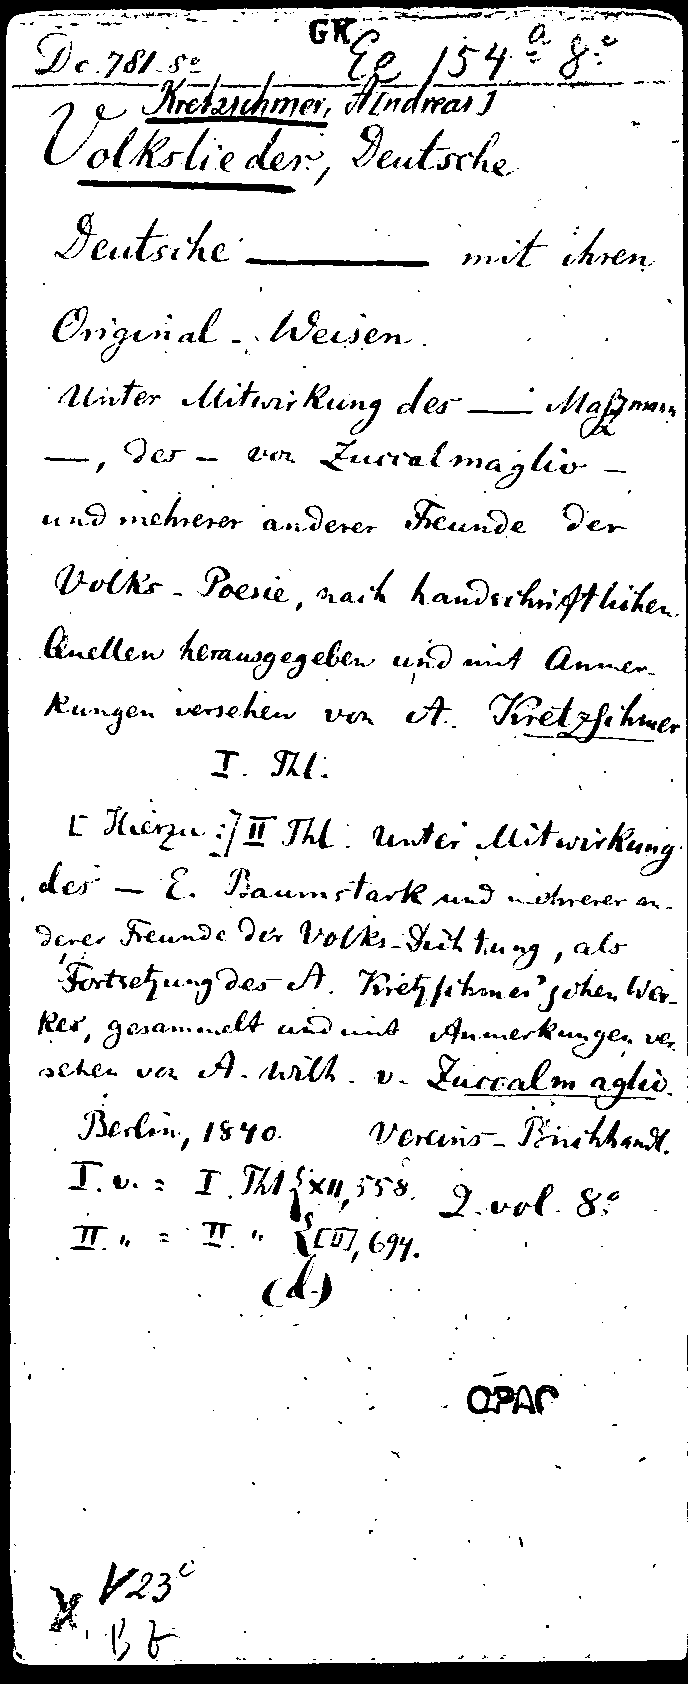 GK
Dc. 781. 8° Ee 154 a 8°
Kretzschmer, A[ndreas]
Volkslieder, Deutsche
Deutsche ——— mit ihren
Original-Weisen.
Unter Mitwirkung des — Maßmann
—, des — von Zuccalmaglio —
und mehrerer anderer Freunde der
Volks-Poesie, nach handschriftlichen
Quellen herausgegeben und mit Anmer-
kungen versehen von A. Kretzschmer
I. Thl.
[Hierzu:] II Thl. Unter Mitwirkung
des — E. Baumstark und mehrerer an-
derer Freunde der Volks-Dichtung, als
Fortsetzung des A. Kretzschmer'schen Wer-
kes, gesammelt und mit Anmerkungen ver-
sehen von A. Wilh. v. Zuccalmaglio.
Berlin, 1840. Vereins-Buchhandl.
I. v. = I. Thl {XII, 558. 2 vol. 8°
II. " = II. " {[II], 694.
(d.)
OPAC
V23c